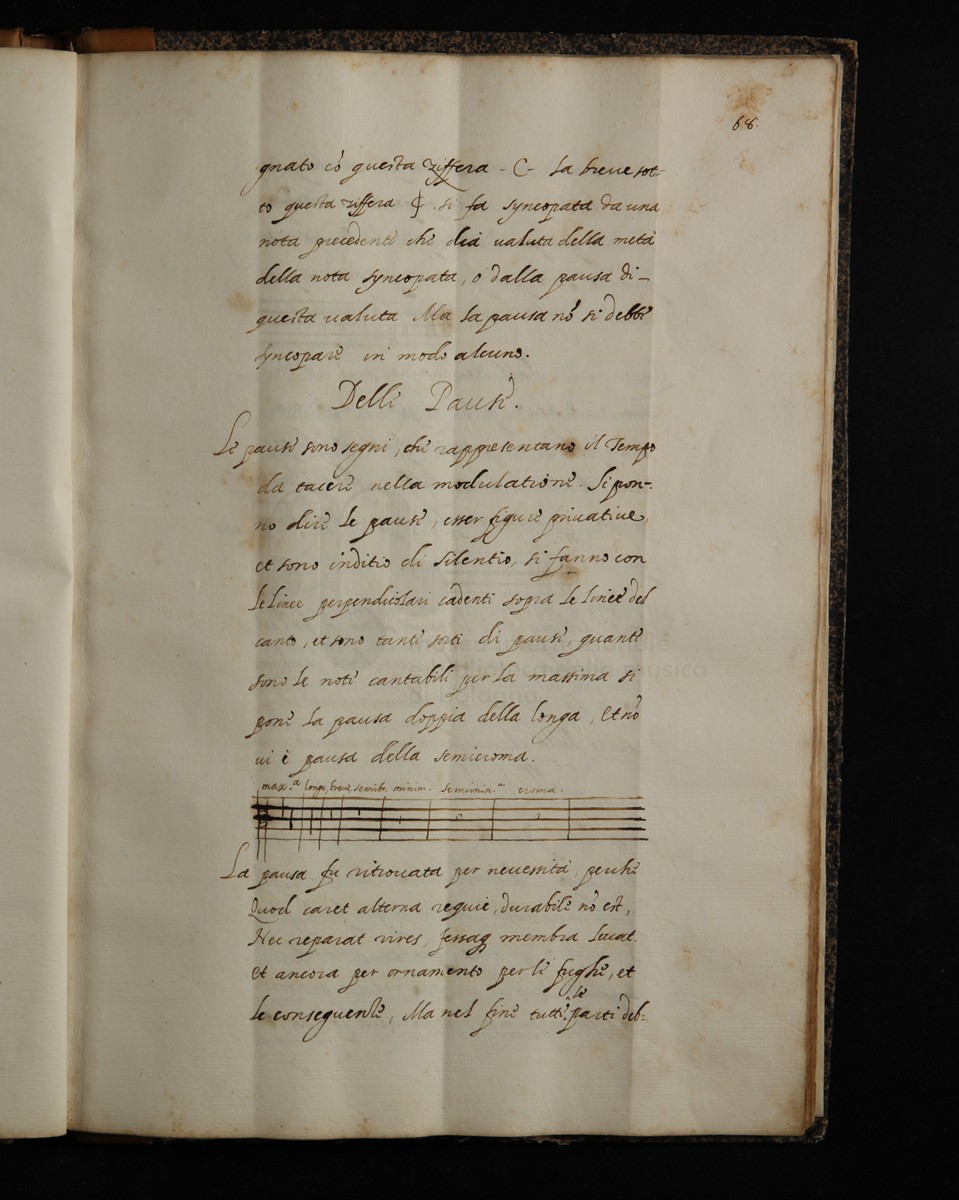 68.
gnato cō questa ziffera - C - la breue sot-
to questa ziffera ₵ . si fa syncopata da una
nota precedente che dia ualuta della metà
della nota syncopata, o dalla pausa di-
questa ualuta Ma la pausa nō si debbe
syncopare in modo alcuno.
Delle Pause.
Le pause sono segni, che rappresentano il Tempo
da tacere nella modulatione. Si pon-
no dire le pause, esser figure priuatiue,
et sono inditio di silentio, si fanno con
le linee perpendicolari cadenti sopra le linee del
canto, et sono tante sorti di pause, quante
sono le note cantabili per la massima si
pone la pausa doppia della longa, et nō
ui è pausa della semicroma.
max.ª longa, breue, semibr. minim. semimin.ª croma.
La pausa fu ritrouata per necessità, perche
Quod caret alterna requie, durabile nō est,
Nec reparat vires, fessaq membra leuat.
et ancora per ornamento per le fughe, et
le conseguenze, Ma nel fine tutte le parti deb-